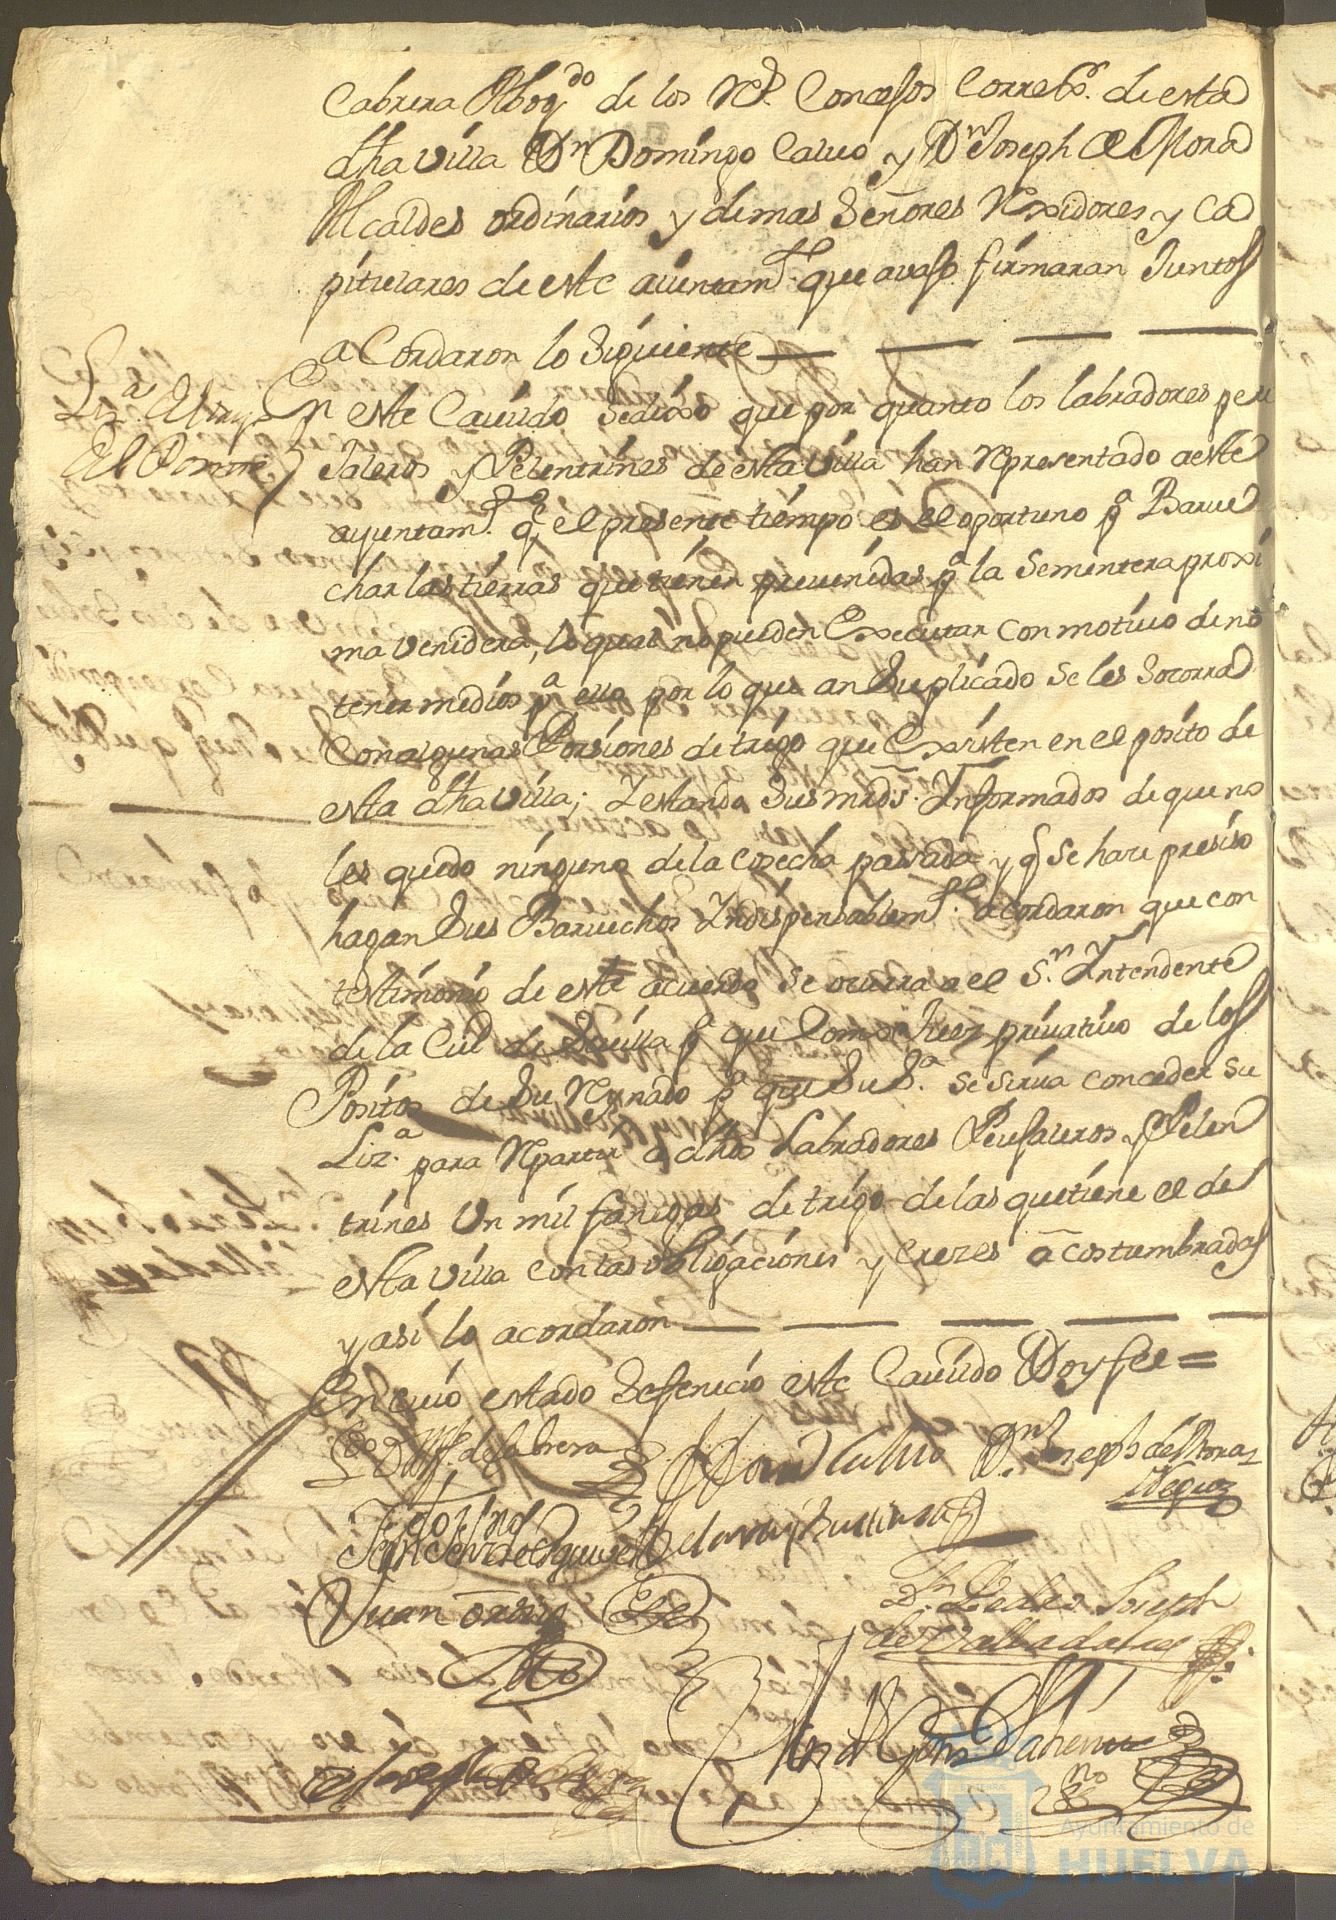 Cabrera Abog.do de los R.s Consejos Corre.or de esta
dha villa Dn Domingo Calvo y Dn Joseph de Mora
Alcaldes ordinarios y demas Señores Rexidores y ca
pitulares de este aiuntam.to que avajo firmaran Juntos
acordaron lo Siguiente
Liz.a
En este Cavildo se dixo que por quanto los labradores peu
Jaleros y Pelentrines de esta villa han Representado a este
ayuntam.to q.e el presente tiempo es el oportuno p.a Barve
char las tierras que tienen prevenidas p.a la Sementera proxi
ma venidera, lo qual no pueden Executar con motivo de no
tener medios p.a ello por lo que an Suplicado se les Socorra
con algunas Porsiones de trigo que Existen en el posito de
esta dha villa; Y estando Sus mrds. Informados de que no
les quedo ninguno de la cosecha passada y q.e se hace presiso
hagan Sus Barvechos Yndispensablem.te acordaron que con
testimonio de este acuerdo se ocurra a el S.r Yntendente
de la Ciud de Sevilla p.a que como Juez privativo de los
Positos de Su Reynado p.a que Su S.a se sirva conceder su
Liz.a para Repartir a dhos Labradores Peujaleros y Pelen
trines Un mil fanegas de trigo de las que tiene el de
esta villa con las obligaciones y crezes acostumbradas
y asi lo acordaron
En cuio estado Se fenecio este Cavildo Doy fee =
de Cabrera Calvo Dn Joseph de Mora
Negron
Juan
Dn Pedro Joseph
de Valladares
Ayuntamiento de
HUELVA